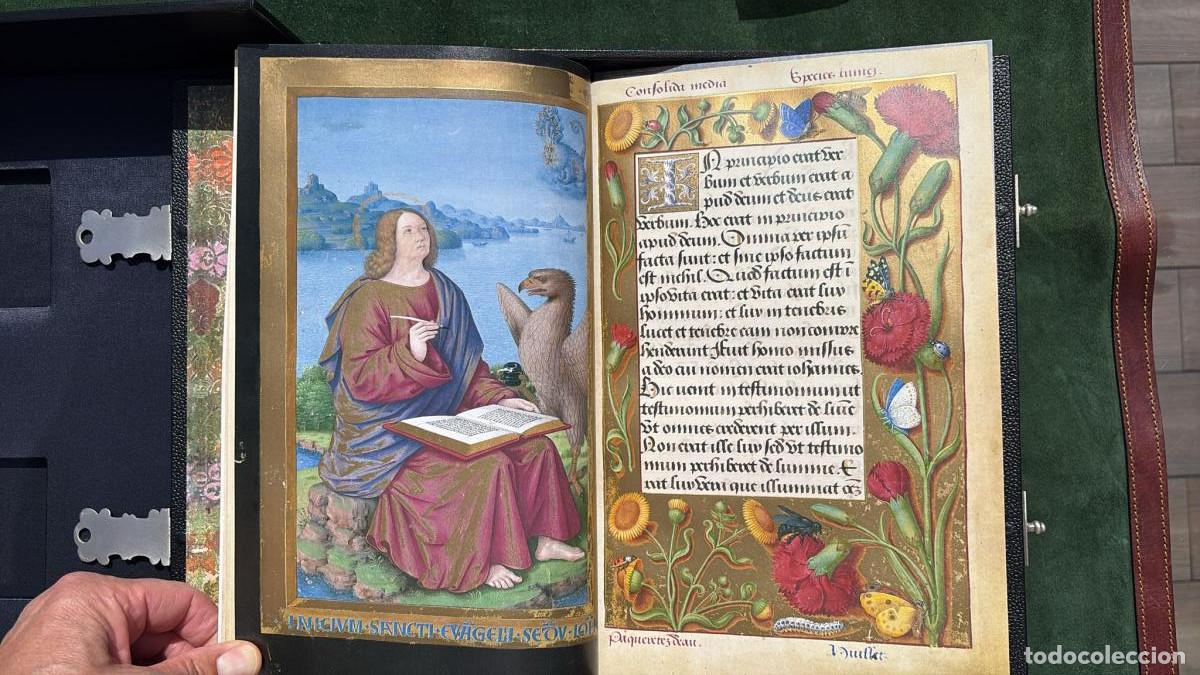 INICIVM · SANCTI · EVĀGELII · SEDV̄
Consolida media Species
IN principio erat ver
bum et verbum erat a
pud deum et deus erat
verbum. Hoc erat in principio
apud deum. Omnia per ipsū
facta sunt: et sine ipso factum
est nichil. Quod factum est ī
ipso vita erat: et vita erat lux
hominum: et lux in tenebris
lucet et tenebre eam non compre
henderunt Fuit homo missus
a deo cui nomen erat iohannes.
Hic venit in testimonium ut
testimonium perhiberet de lumīe
Vt omnes crederent per illum.
Non erat ille lux sed vt testimo
nium perhiberet de lumine. E
rat lux vera que illuminat oēz
Paqueretez deau.
todocoleccion